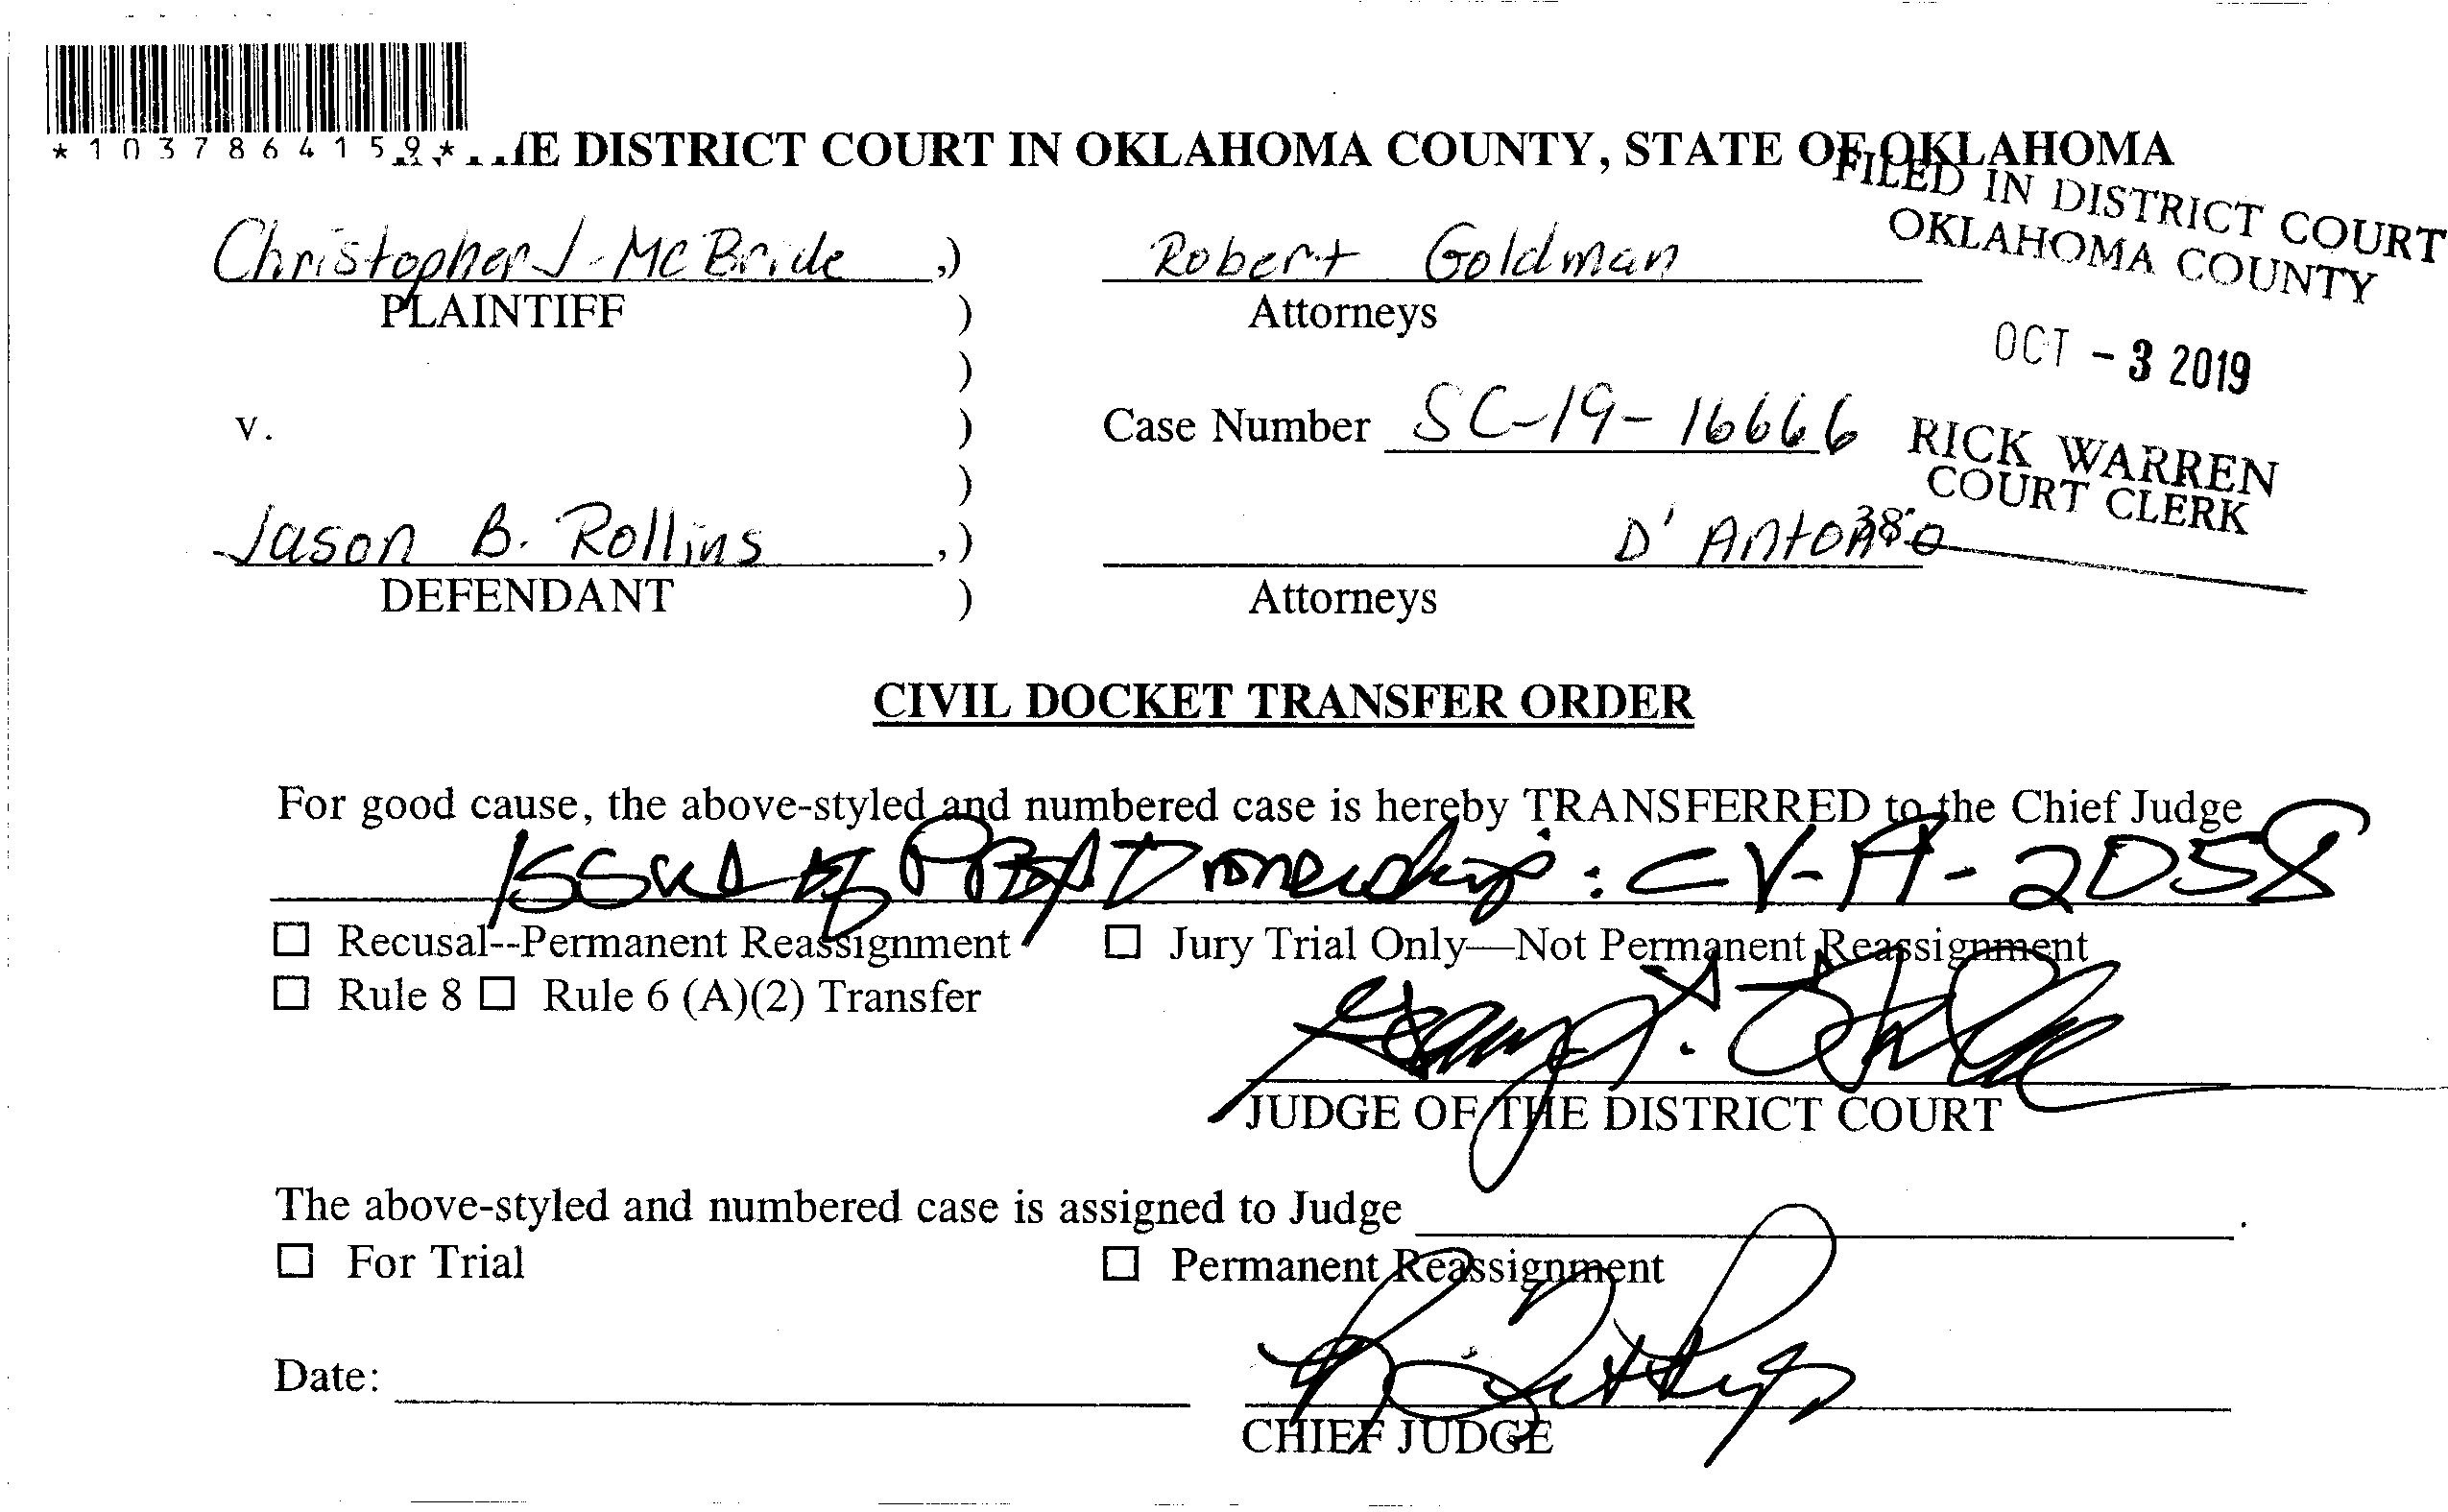 *1037864159*
DISTRICT COURT IN OKLAHOMA COUNTY, STATE OF OKLAHOMA
FILED IN DISTRICT COURT
OKLAHOMA COUNTY
Christopher J. McBride ,) Robert Goldman
PLAINTIFF ) Attorneys
OCT - 3 2019
)
v. ) Case Number SC-19-16666
RICK WARREN
COURT CLERK
)
Jason B. Rollins ,) D'Antonio
38
DEFENDANT ) Attorneys
CIVIL DOCKET TRANSFER ORDER
For good cause, the above-styled and numbered case is hereby TRANSFERRED to the Chief Judge
issue of ownership: CV-19-2058
☐ Recusal--Permanent Reassignment ☐ Jury Trial Only—Not Permanent Reassignment
☐ Rule 8 ☐ Rule 6 (A)(2) Transfer
JUDGE OF THE DISTRICT COURT
The above-styled and numbered case is assigned to Judge .
☐ For Trial ☐ Permanent Reassignment
Date:
CHIEF JUDGE